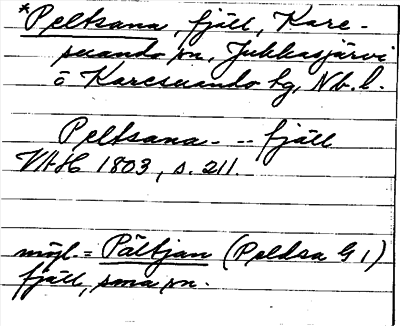 *Peltsana, fjäll, Kare-
suando sn, Jukkasjärvi
o Karesuando tg, Nb. l.
Peltsana - - - fjäll
VAH 1803, s. 211.
möjl. = Pältjan (Peldsa G 1)
fjäll, sma sn.